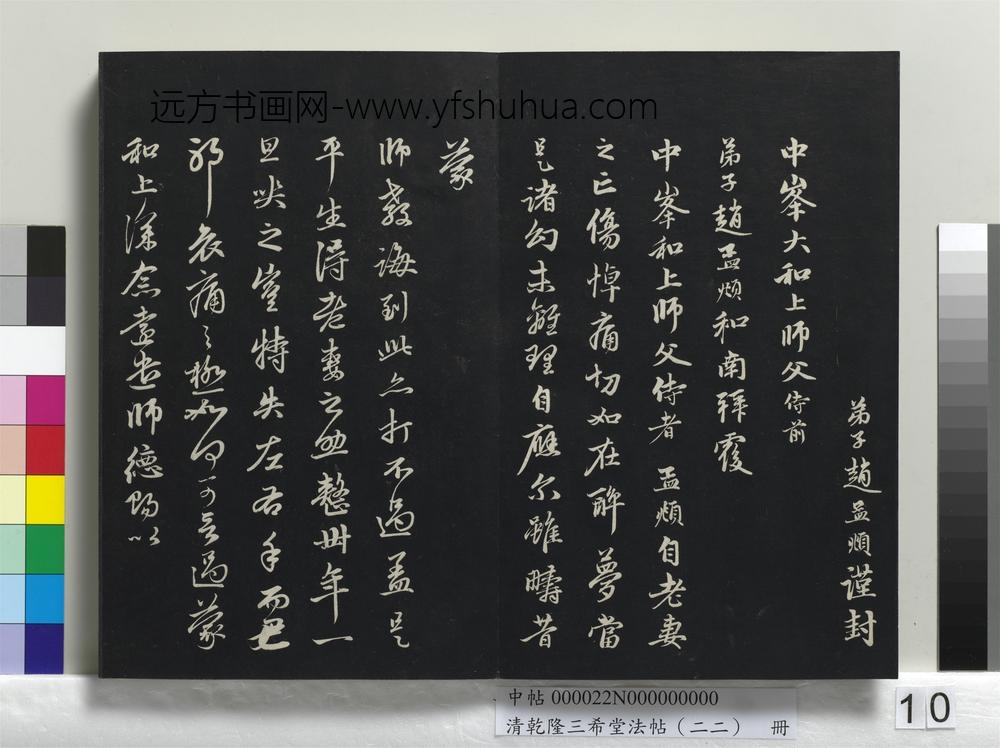 远方书画网-www.yfshuhua.com
弟子趙孟頫謹封
中峯大和上師父侍前
弟子趙孟頫和南拜覆
中峯和上師父侍者 孟頫自老妻
之亡傷悼痛切如在醉夢當
是諸幻未離理自應尔雖疇昔
蒙
師教誨到此亦打不過盖是
平生得老妻之助整卅年一
旦哭之豈特失左右手而已
耶哀痛之極如何可言過蒙
和上深念遠遣師德賜以
中帖 000022N000000000
清乾隆三希堂法帖（二二） 冊
10